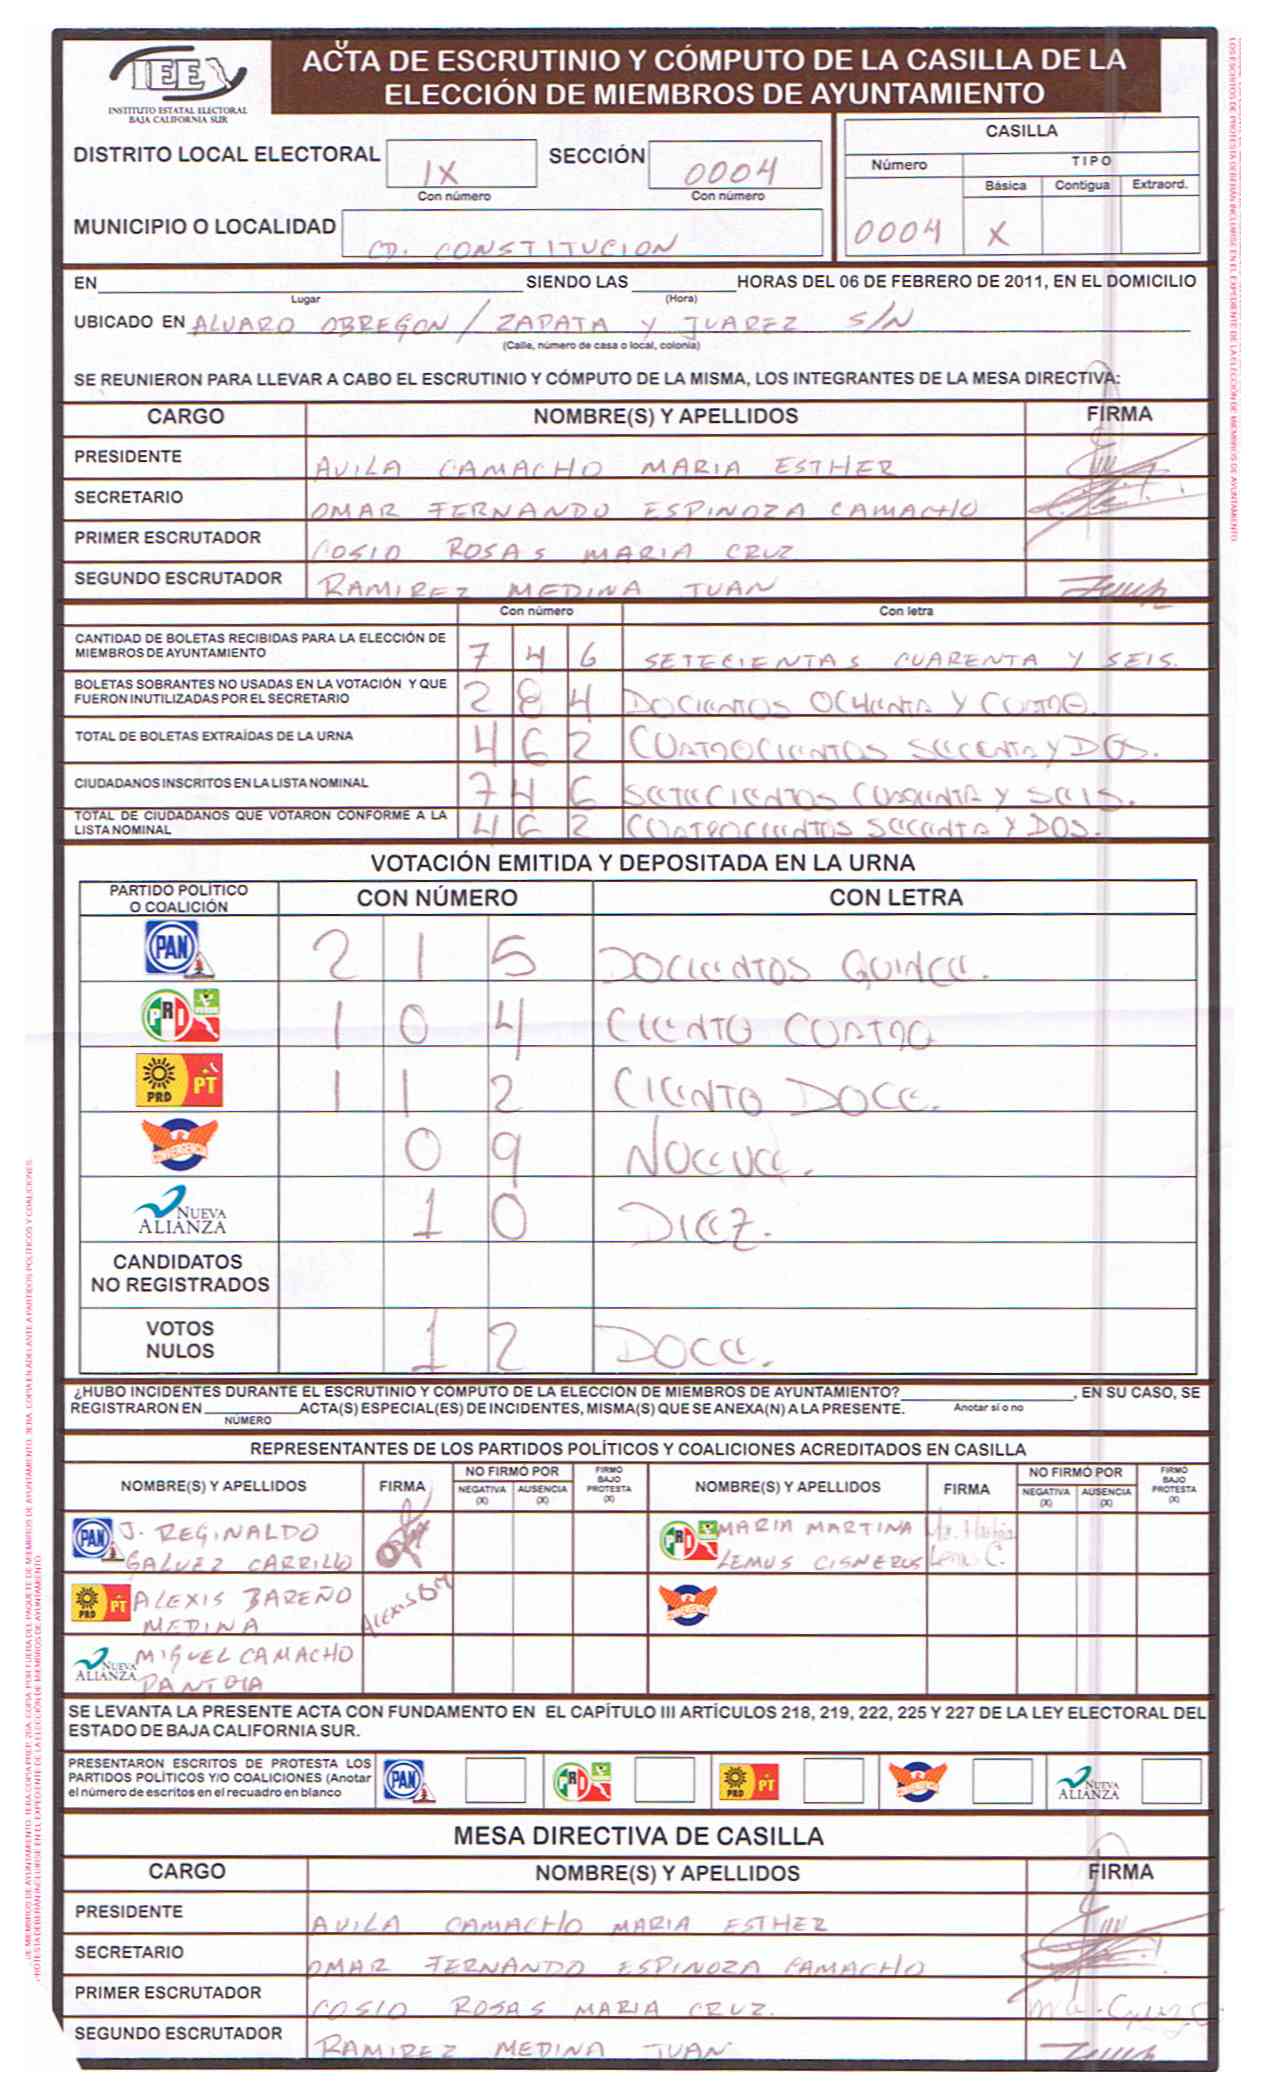 IEE
INSTITUTO ESTATAL ELECTORAL
BAJA CALIFORNIA SUR
ACTA DE ESCRUTINIO Y CÓMPUTO DE LA CASILLA DE LA
ELECCIÓN DE MIEMBROS DE AYUNTAMIENTO
DISTRITO LOCAL ELECTORAL IX SECCIÓN 0004
Con número Con número
MUNICIPIO O LOCALIDAD CD. CONSTITUCION
CASILLA
Número TIPO
Básica Contigua Extraord.
0004 X
EN SIENDO LAS HORAS DEL 06 DE FEBRERO DE 2011, EN EL DOMICILIO
Lugar (Hora)
UBICADO EN ALVARO OBREGON / ZAPATA Y JUAREZ S/N
(Calle, número de casa o local, colonia)
SE REUNIERON PARA LLEVAR A CABO EL ESCRUTINIO Y CÓMPUTO DE LA MISMA, LOS INTEGRANTES DE LA MESA DIRECTIVA:
CARGO NOMBRE(S) Y APELLIDOS FIRMA
PRESIDENTE AVILA CAMACHO MARIA ESTHER
SECRETARIO OMAR FERNANDO ESPINOZA CAMACHO
PRIMER ESCRUTADOR COSIO ROSAS MARIA CRUZ
SEGUNDO ESCRUTADOR RAMIREZ MEDINA JUAN
Con número Con letra
CANTIDAD DE BOLETAS RECIBIDAS PARA LA ELECCIÓN DE
MIEMBROS DE AYUNTAMIENTO 7 4 6 SETECIENTAS CUARENTA Y SEIS.
BOLETAS SOBRANTES NO USADAS EN LA VOTACIÓN Y QUE
FUERON INUTILIZADAS POR EL SECRETARIO 2 8 4 DOCIENTOS OCHENTA Y CUATRO.
TOTAL DE BOLETAS EXTRAÍDAS DE LA URNA 4 6 2 CUATROCIENTOS SECENTA Y DOS.
CIUDADANOS INSCRITOS EN LA LISTA NOMINAL 7 4 6 SETECIENTOS CUARENTA Y SEIS.
TOTAL DE CIUDADANOS QUE VOTARON CONFORME A LA
LISTA NOMINAL 4 6 2 CUATROCIENTOS SECENTA Y DOS.
VOTACIÓN EMITIDA Y DEPOSITADA EN LA URNA
PARTIDO POLÍTICO
O COALICIÓN CON NÚMERO CON LETRA
PAN 2 1 5 DOCIENTOS QUINCE.
PRI VERDE 1 0 4 CIENTO CUATRO
PRD PT 1 1 2 CIENTO DOCE.
CONVERGENCIA 0 9 NUEVE.
NUEVA ALIANZA 1 0 DIEZ.
CANDIDATOS
NO REGISTRADOS
VOTOS
NULOS 1 2 DOCE.
¿HUBO INCIDENTES DURANTE EL ESCRUTINIO Y CÓMPUTO DE LA ELECCIÓN DE MIEMBROS DE AYUNTAMIENTO? , EN SU CASO, SE
REGISTRARON EN ACTA(S) ESPECIAL(ES) DE INCIDENTES, MISMA(S) QUE SE ANEXA(N) A LA PRESENTE. Anotar sí o no
NÚMERO
REPRESENTANTES DE LOS PARTIDOS POLÍTICOS Y COALICIONES ACREDITADOS EN CASILLA
NOMBRE(S) Y APELLIDOS FIRMA NO FIRMÓ POR NEGATIVA (X) AUSENCIA (X) FIRMÓ BAJO PROTESTA (X) NOMBRE(S) Y APELLIDOS FIRMA NO FIRMÓ POR NEGATIVA (X) AUSENCIA (X) FIRMÓ BAJO PROTESTA (X)
PAN J. REGINALDO GALVEZ CARRILLO
PRI MARIA MARTINA LEMUS CISNEROS Ma. Martina Lemus C.
PRD PT ALEXIS BAREÑO MEDINA ALEXIS BM
CONVERGENCIA
NUEVA ALIANZA MIGUEL CAMACHO PANTOJA
SE LEVANTA LA PRESENTE ACTA CON FUNDAMENTO EN EL CAPÍTULO III ARTÍCULOS 218, 219, 222, 225 Y 227 DE LA LEY ELECTORAL DEL
ESTADO DE BAJA CALIFORNIA SUR.
PRESENTARON ESCRITOS DE PROTESTA LOS
PARTIDOS POLÍTICOS Y/O COALICIONES (Anotar
el número de escritos en el recuadro en blanco
PAN PRI PRD PT CONVERGENCIA NUEVA ALIANZA
MESA DIRECTIVA DE CASILLA
CARGO NOMBRE(S) Y APELLIDOS FIRMA
PRESIDENTE AVILA CAMACHO MARIA ESTHER
SECRETARIO OMAR FERNANDO ESPINOZA CAMACHO
PRIMER ESCRUTADOR COSIO ROSAS MARIA CRUZ.
SEGUNDO ESCRUTADOR RAMIREZ MEDINA JUAN